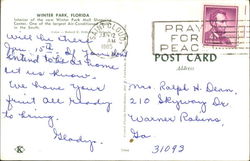 WINTER PARK, FLORIDA
Interior of the new Winter Park Mall Shopping
Center. One of the largest Air-Conditioned
in the South.
Will be
Jan. 15th. If you don't
intend to be at home
let us know.
We have your
fruit all ready
to bring.
Gladys.
JAN 12
AM
1965
PRAY
FOR
PEACE
POST CARD
Address
Mrs. Ralph H. Dean,
210 Skyway Dr.
Warner Robins,
Ga.
31093